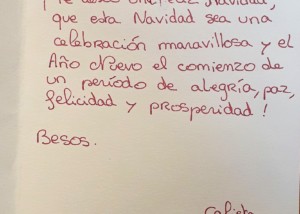 que esta Navidad sea una
celebración maravillosa y el
Año Nuevo el comienzo de
un período de alegría, paz,
felicidad y prosperidad !
Besos.